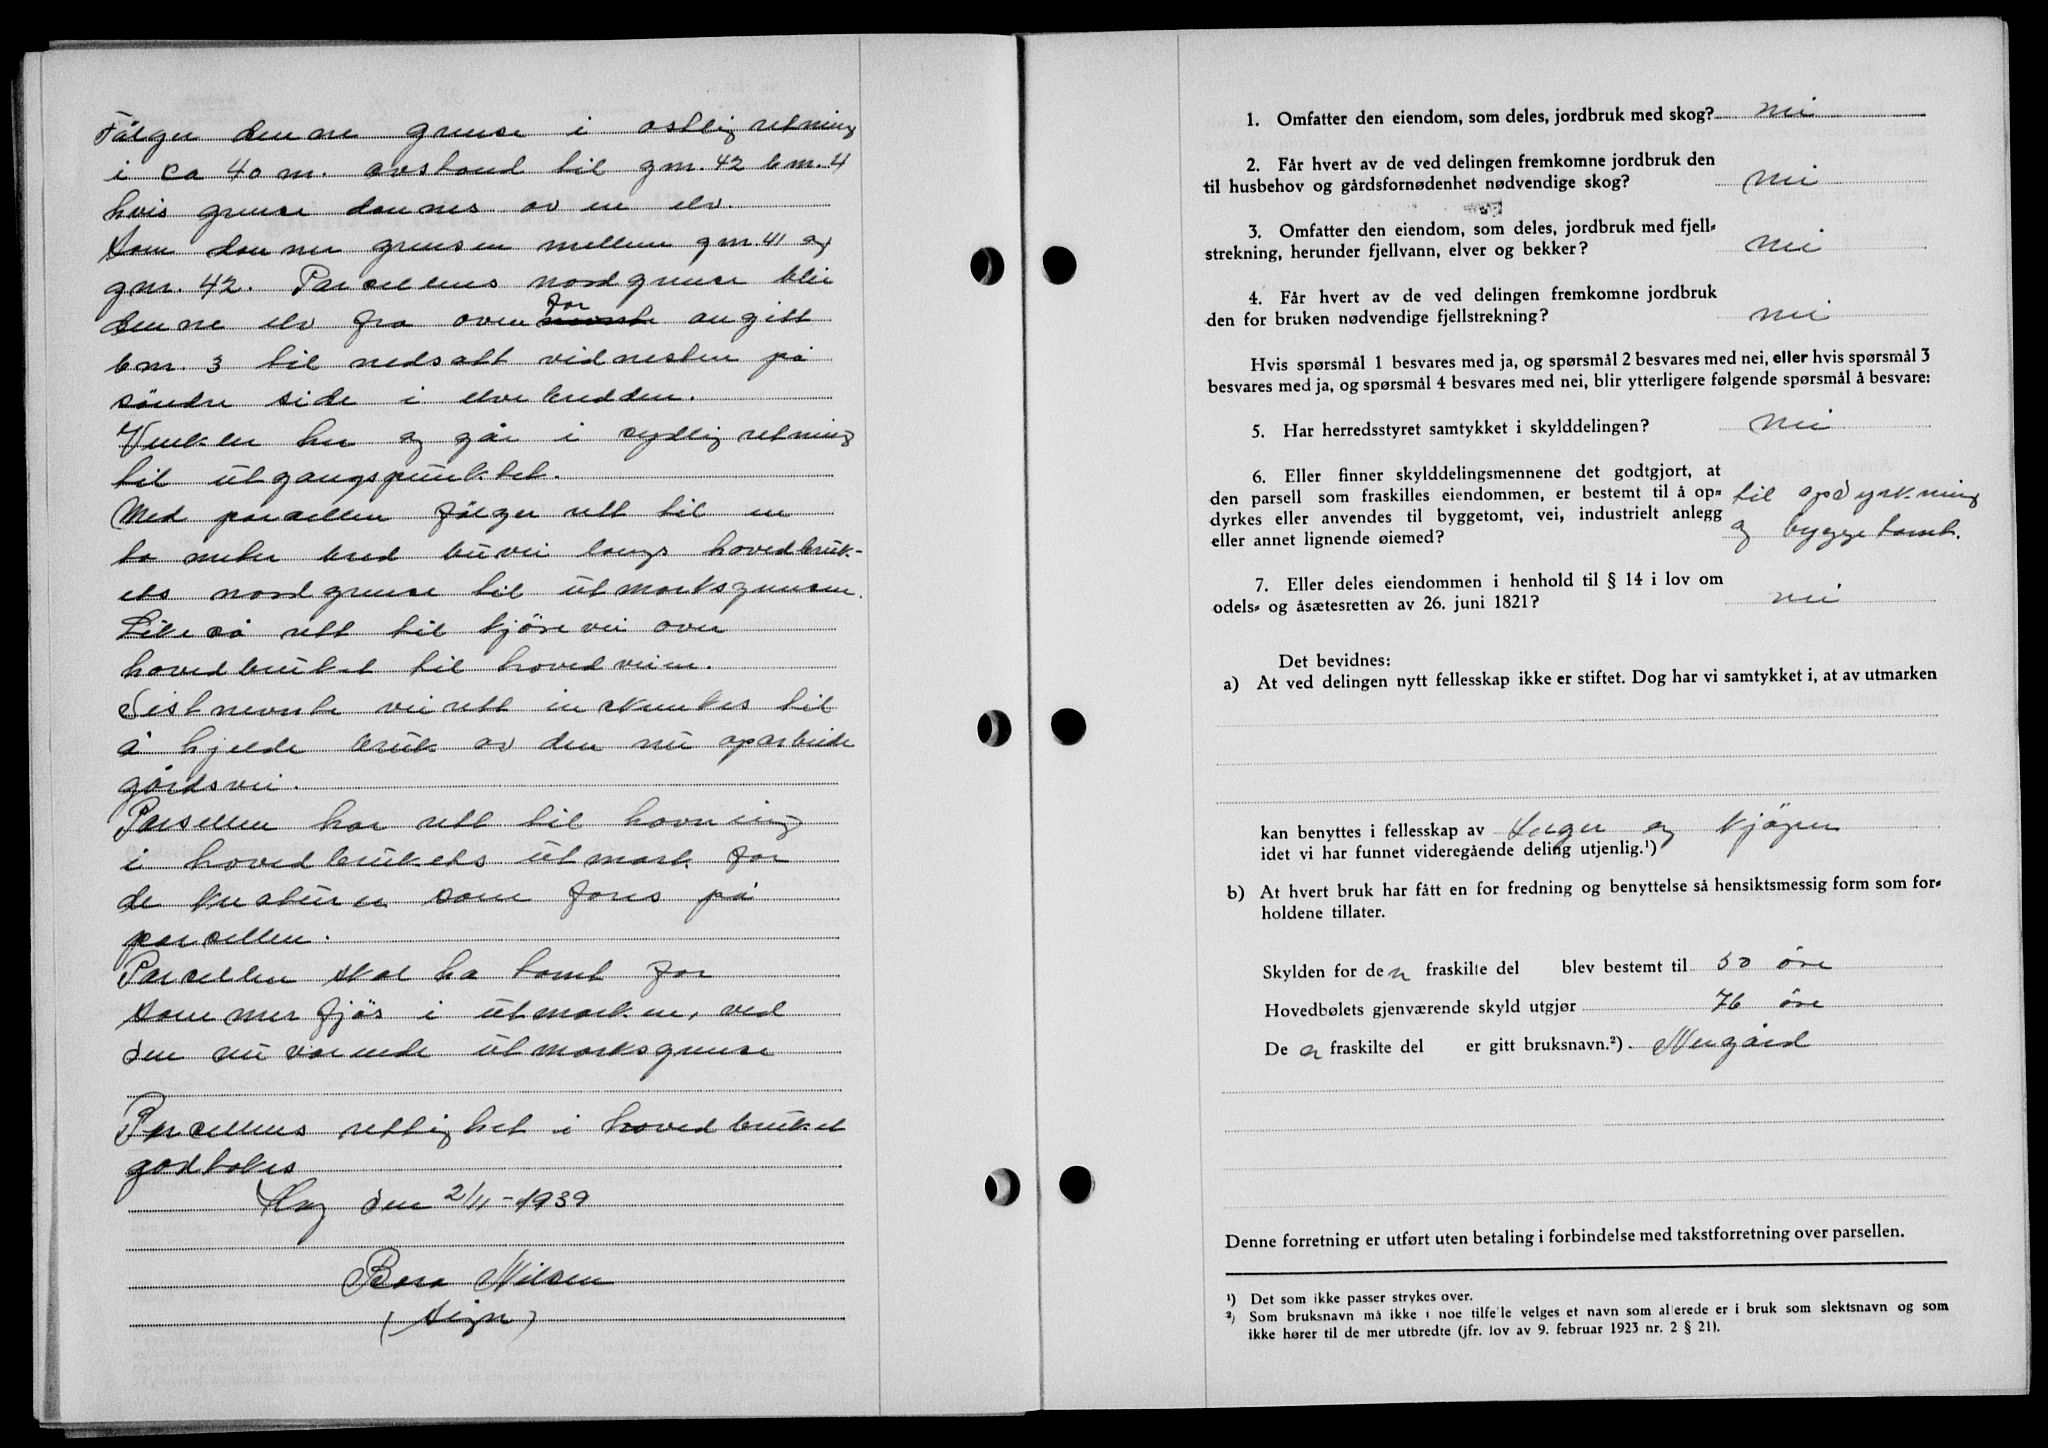 Følger denne grense i østlig retning
i ca 40 m. avstand til gnr. 42 bnr. 4
hvis grense dannes av en elv.
Som danner grensen mellem gnr 41 og
gnr. 42. Parcellens nordgrense blir
denne elv fra oven for angitt
bnr. 3 til nedsatt vidnesten på
søndre side i elvebredden.
Vinkler her og går i sydlig retning
til utgangspunktet.
Med parcellen følger rett til en
to meter bred buvei langs hovedbruk-
ets nordgrense til utmarksgrensen.
Like så rett til kjørevei over
hovedbruket til hovedveien.
Sistnevnte veirett innskrenkes til
å hjelde bruk av den nu oparbeide
gårdsvei.
Parsellen har rett til havning
i hovedbrukets utmark for
de kreaturer som fores på
parcellen.
Parcellen skal ha tomt for
sommerfjøs i utmarken, ved
den nuværende utmarksgrense
Parcellens rettighet i hovedbruket
godtokes
den 2/11-1939
Nilsen
(sign)
1. Omfatter den eiendom, som deles, jordbruk med skog? nei
2. Får hvert av de ved delingen fremkomne jordbruk den
til husbehov og gårdsfornødenhet nødvendige skog? nei
3. Omfatter den eiendom, som deles, jordbruk med fjell-
strekning, herunder fjellvann, elver og bekker? nei
4. Får hvert av de ved delingen fremkomne jordbruk
den for bruken nødvendige fjellstrekning? nei
Hvis spørsmål 1 besvares med ja, og spørsmål 2 besvares med nei, eller hvis spørsmål 3
besvares med ja, og spørsmål 4 besvares med nei, blir ytterligere følgende spørsmål å besvare:
5. Har herredsstyret samtykket i skylddelingen? nei
6. Eller finner skylddelingsmennene det godtgjort, at
den parsell som fraskilles eiendommen, er bestemt til å op- til opdyrkning
dyrkes eller anvendes til byggetomt, vei, industrielt anlegg
eller annet lignende øiemed? og byggetomt.
7. Eller deles eiendommen i henhold til § 14 i lov om
odels- og åsætesretten av 26. juni 1821? nei
Det bevidnes:
a) At ved delingen nytt fellesskap ikke er stiftet. Dog har vi samtykket i, at av utmarken
kan benyttes i fellesskap av selger og kjøper
idet vi har funnet videregående deling utjenlig.¹)
b) At hvert bruk har fått en for fredning og benyttelse så hensiktsmessig form som for-
holdene tillater.
Skylden for den fraskilte del blev bestemt til 50 øre
Hovedbølets gjenværende skyld utgjør 76 øre
De n fraskilte del er gitt bruksnavn.²) Nergård
Denne forretning er utført uten betaling i forbindelse med takstforretning over parsellen.
¹) Det som ikke passer strykes over.
²) Som bruksnavn må ikke i noe tilfelle velges et navn som allerede er i bruk som slektsnavn og som
ikke hører til de mer utbredte (jfr. lov av 9. februar 1923 nr. 2 § 21).